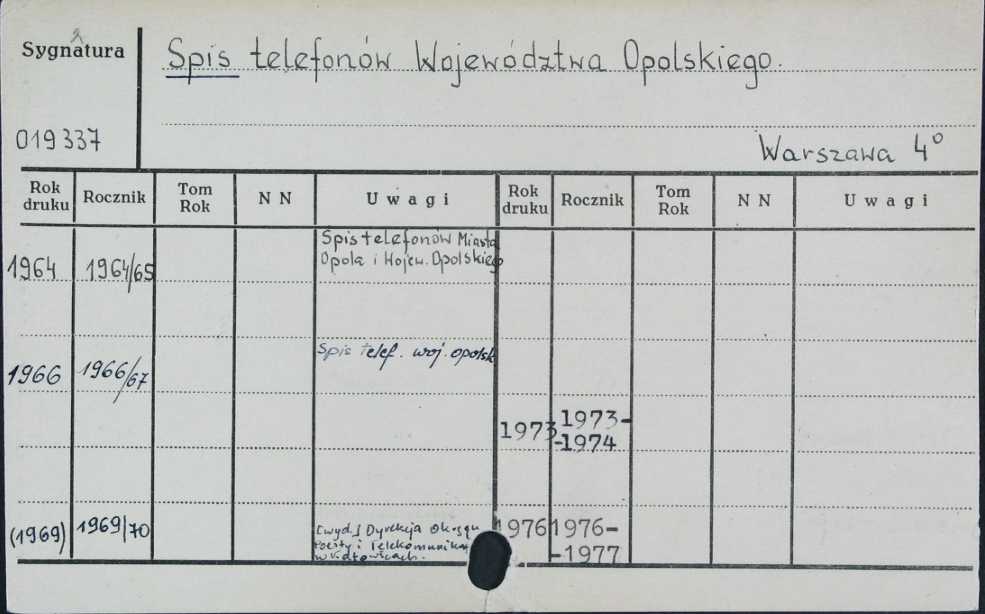 Sygnatura
Spis telefonów Województwa Opolskiego.
019337
Warszawa 4°
Rok druku Rocznik Tom Rok N N Uwagi Rok druku Rocznik Tom Rok N N Uwagi
Spis telefonów Miasta
1964 1964/65 Opola i Wojew. Opolskiego
Spis telef. woj. opolsk
1966 1966/67
1973 1973-
-1974
(1969) 1969/70 [wyd.] Dyrekcja Okręgu 1976 1976-
Poczty i Telekomunikacj -1977
w Katowicach.